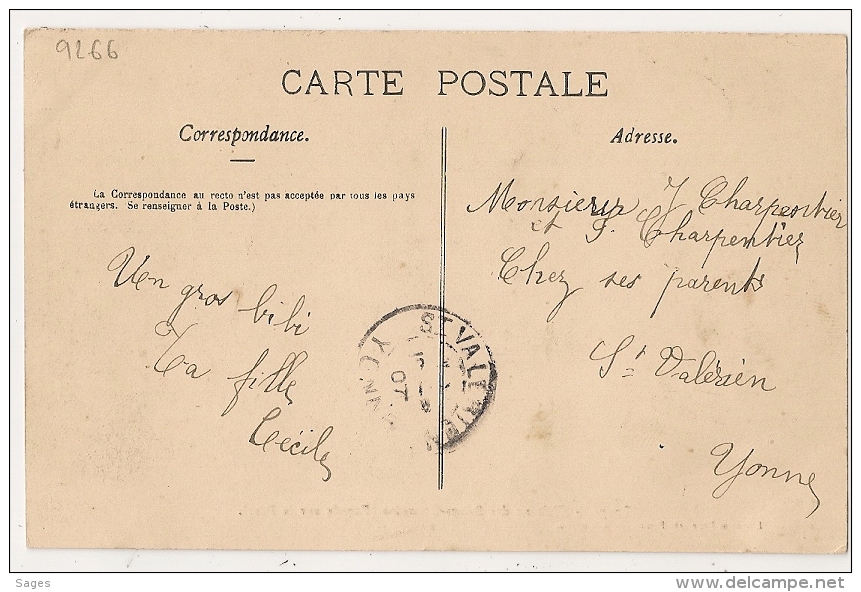 9266
CARTE POSTALE
Correspondance.
La Correspondance au recto n'est pas acceptée par tous les pays
étrangers. Se renseigner à la Poste.)
Un gros bibi
Ta fille
Cécile
Adresse.
Monsieur J Charpentier
et S. Charpentier
Chez ses parents
St Valérien
Yonne
ST VALERIEN
YONNE
07
Sages
delcampe.net